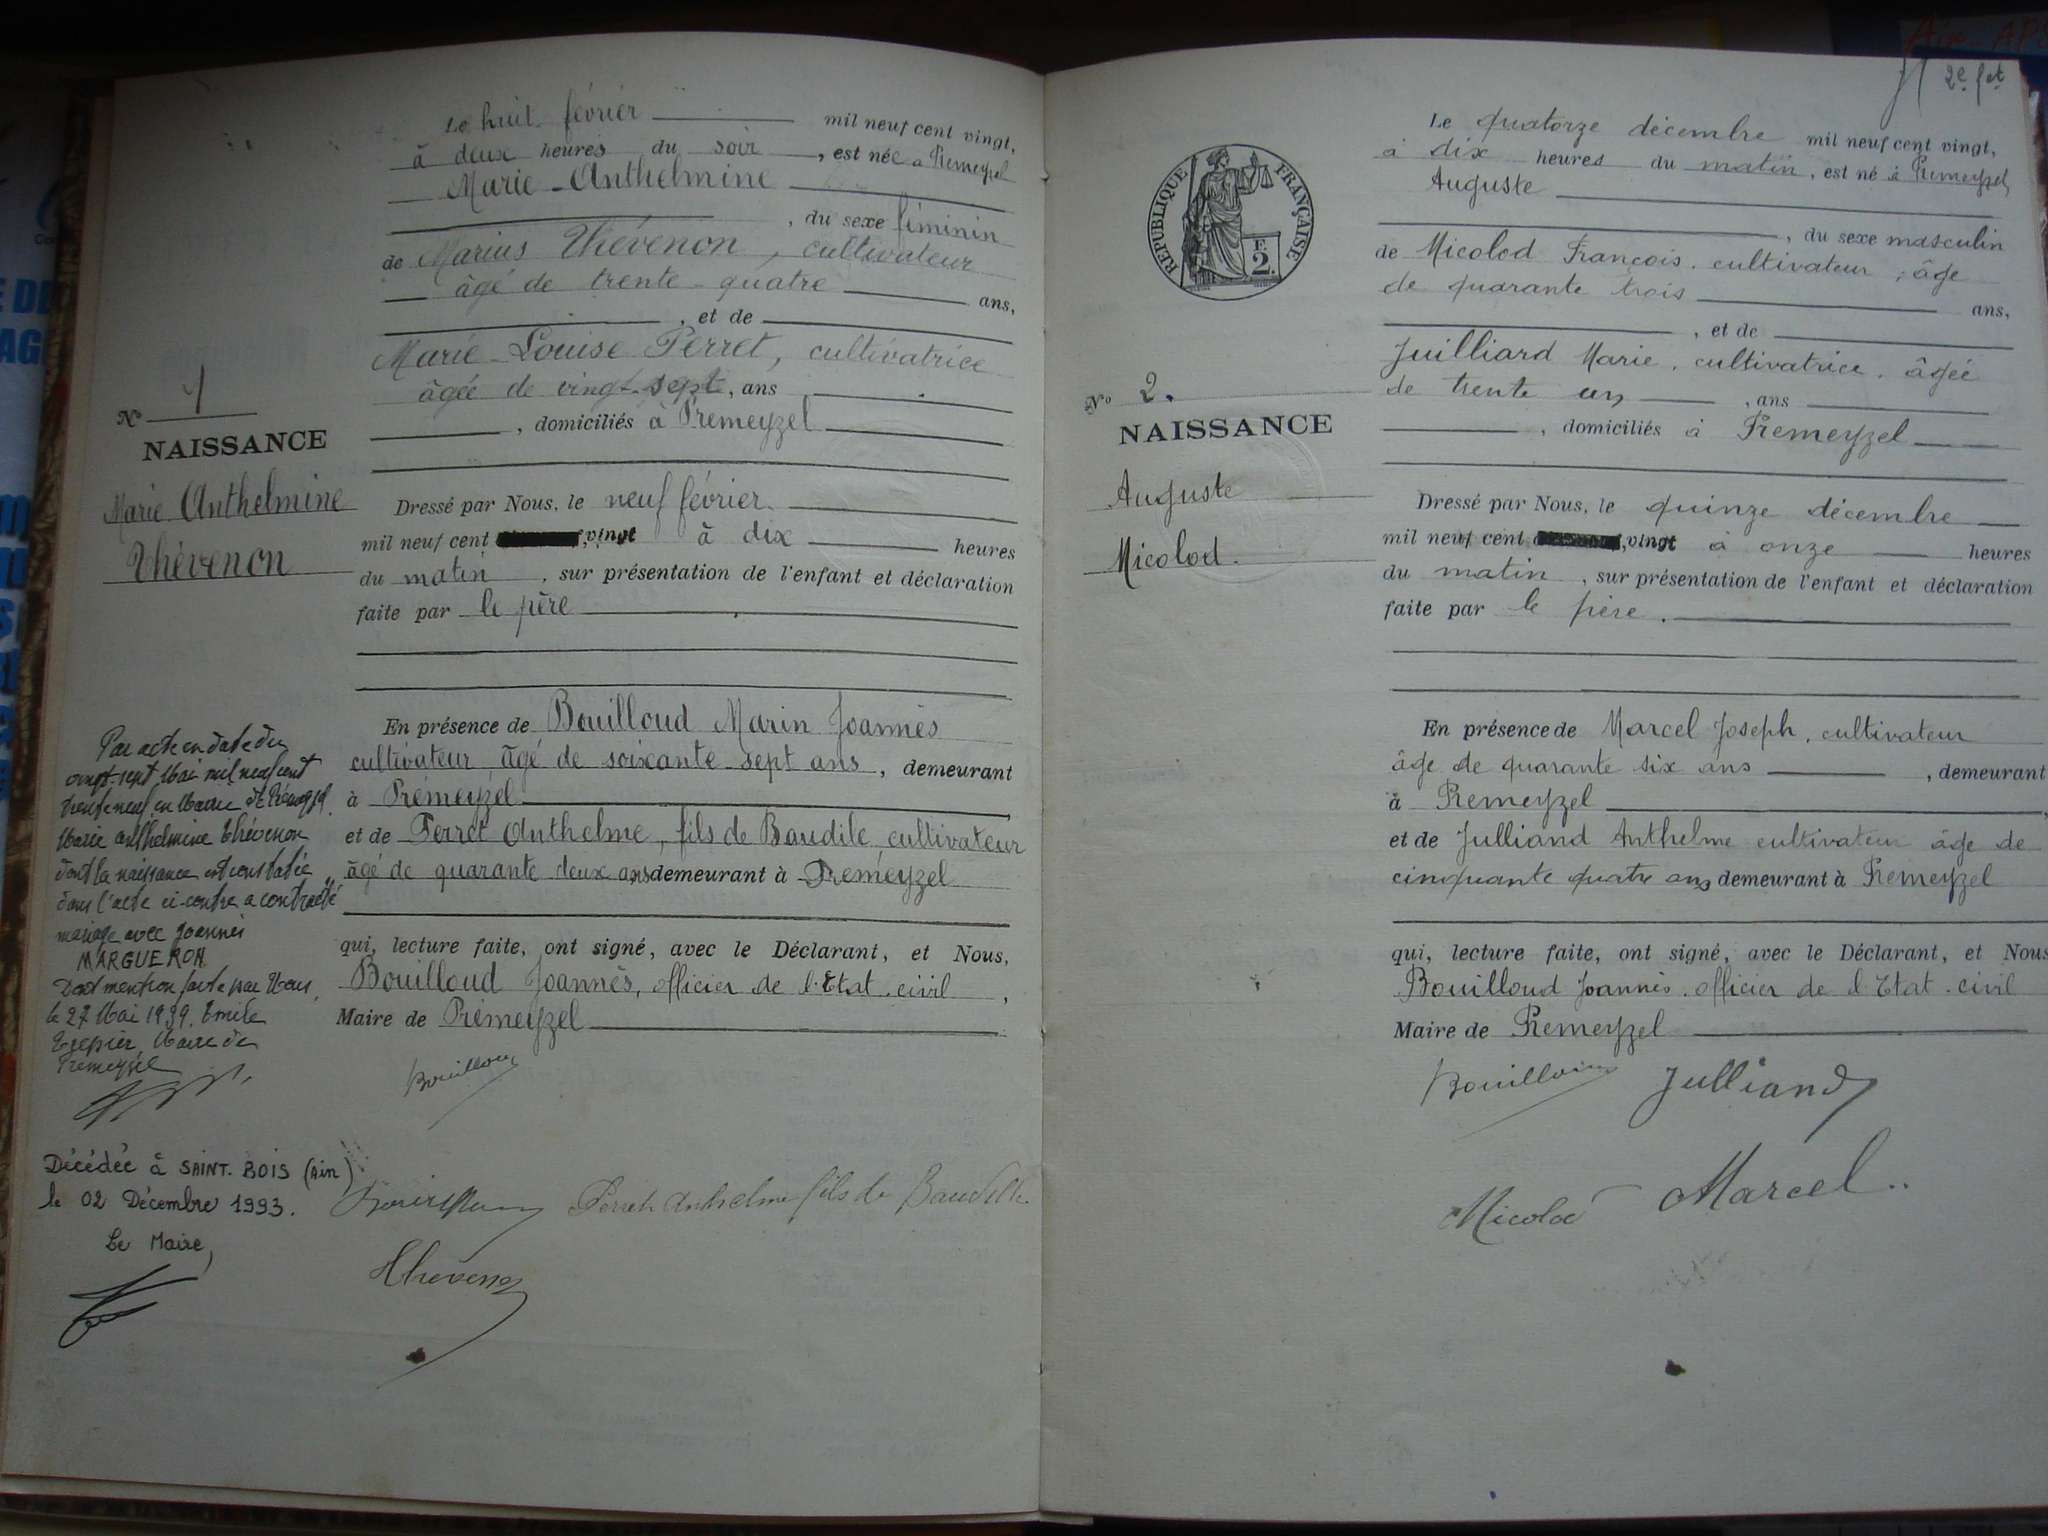 Le huit février mil neuf cent vingt,
à deux heures du soir, est née à Premeyzel
Marie-Anthelmine
, du sexe féminin
de Marius Thévenon, cultivateur
âgé de trente-quatre ans,
, et de
Marie-Louise Perret, cultivatrice
âgée de vingt-sept, ans
, domiciliés à Premeyzel
Nº 1
NAISSANCE
Marie Anthelmine
Thévenon
Dressé par Nous, le neuf février
mil neuf cent vingt à dix heures
du matin, sur présentation de l'enfant et déclaration
faite par le père
En présence de Bouilloud Marin Joannès
cultivateur âgé de soixante-sept ans, demeurant
à Prémeyzel
et de Perret Anthelme, fils de Baudile, cultivateur
âgé de quarante deux ans demeurant à Premeyzel
qui, lecture faite, ont signé, avec le Déclarant, et Nous,
Bouilloud Joannès, officier de l'Etat-civil,
Maire de Prémeyzel
Par acte en date du
vingt-sept Mai mil neuf cent
trente neuf en Mairie de Prémeyzel
Marie Anthelmine Thévenon
dont la naissance est constatée
dans l'acte ci-contre a contracté
mariage avec Joannès
MARGUERON
Dont mention faite par Nous,
le 27 Mai 1939. Emile
Maire de
Premeyzel
Décédée à SAINT-BOIS (Ain)
le 02 Décembre 1993.
Le Maire,
Bouilloud
Perret Anthelme fils de Baudile
Thévenon
2e f et
REPUBLIQUE FRANÇAISE
F.
2.
Le quatorze décembre mil neuf cent vingt,
à dix heures du matin, est né à Premeyzel
Auguste
, du sexe masculin
de Micolod François, cultivateur, âgé
de quarante trois ans,
, et de
Juilliard Marie, cultivatrice, âgée
de trente un, ans
, domiciliés à Premeyzel
Nº 2.
NAISSANCE
Auguste
Micolod.
Dressé par Nous, le quinze décembre
mil neuf cent vingt à onze heures
du matin, sur présentation de l'enfant et déclaration
faite par le père.
En présence de Marcel Joseph, cultivateur
âge de quarante six ans, demeurant
à Premeyzel
et de Julliand Anthelme cultivateur âge de
cinquante quatre ans demeurant à Premeyzel
qui, lecture faite, ont signé, avec le Déclarant, et Nous
Bouilloud Joannès, officier de l'Etat-civil
Maire de Premeyzel
Bouilloud Julliand
Micolod Marcel